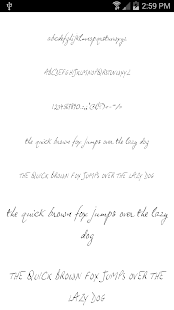 2:59 PM
abcdefghijklmnopqrstuvwxyz
ABCDEFGHIJKLMNOPQRSTUVWXYZ
the quick brown fox jumps over the lazy dog
THE QUICK BROWN FOX JUMPS OVER THE LAZY DOG
the quick brown fox jumps over the lazy
dog
THE QUICK BROWN FOX JUMPS OVER THE
LAZY DOG